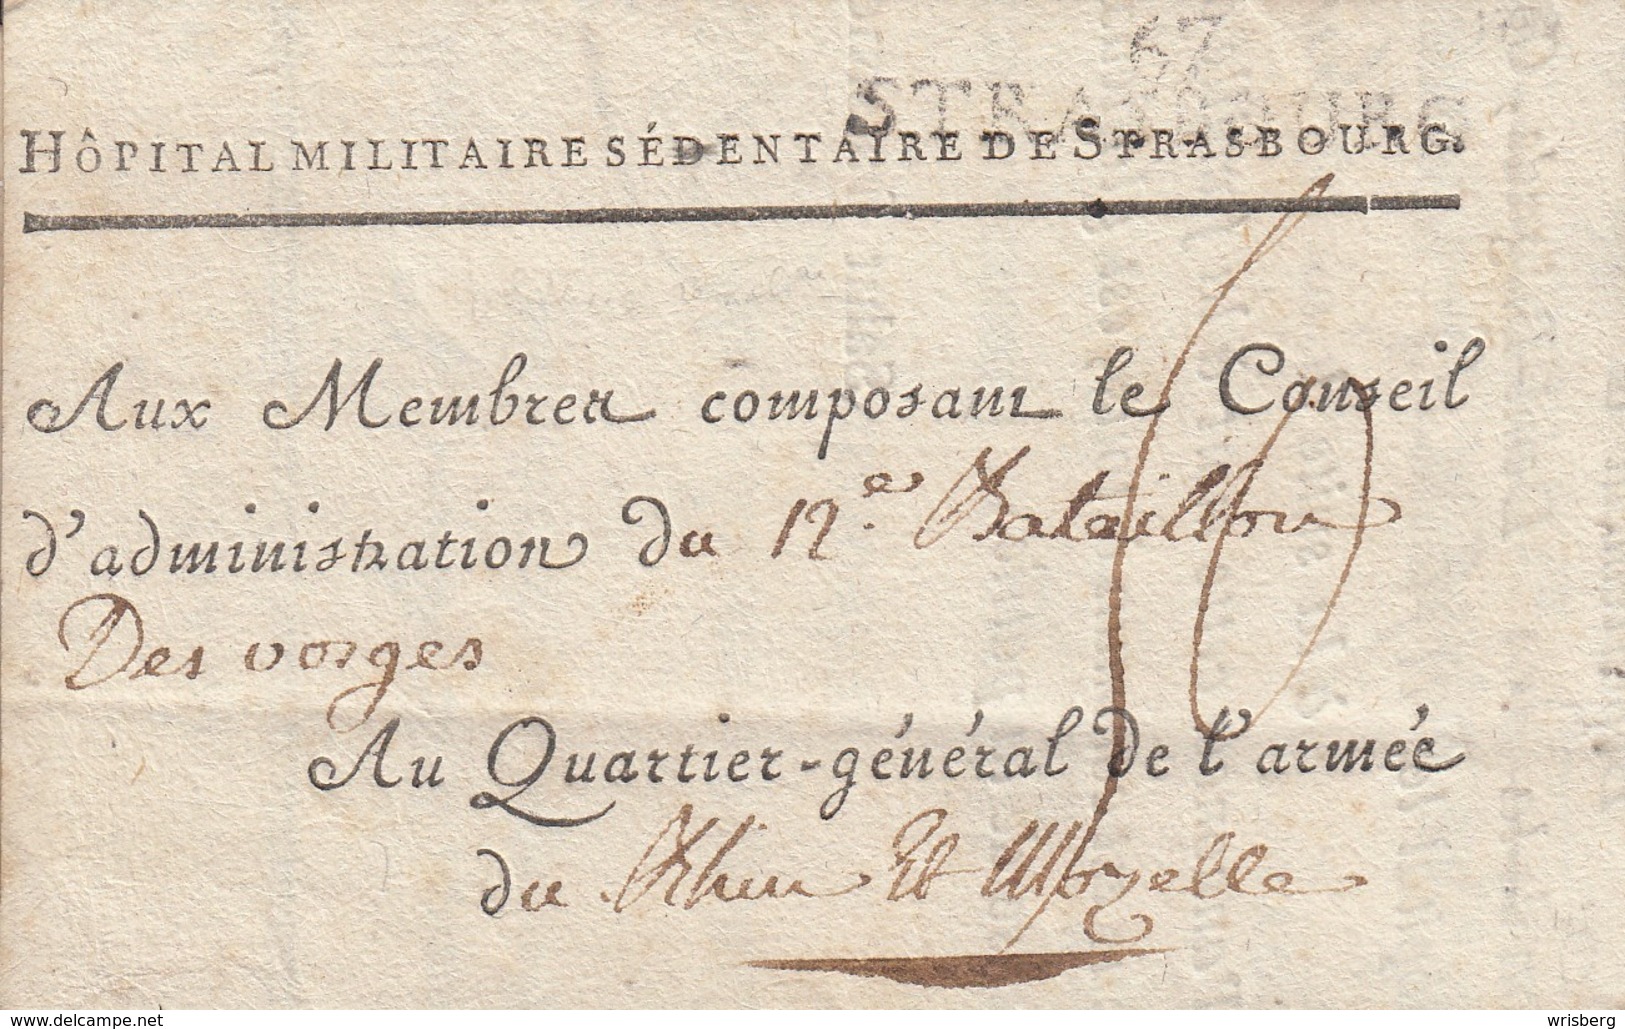 67
STRASBOURG
HÔPITAL MILITAIRE SÉDENTAIRE DE STRASBOURG.
Aux Membres composant le Conseil
d'administration du 12.e Bataillon
Des vosges
Au Quartier-général de l'armée
du Rhin Et Mozelle
www.delcampe.net
wrisberg